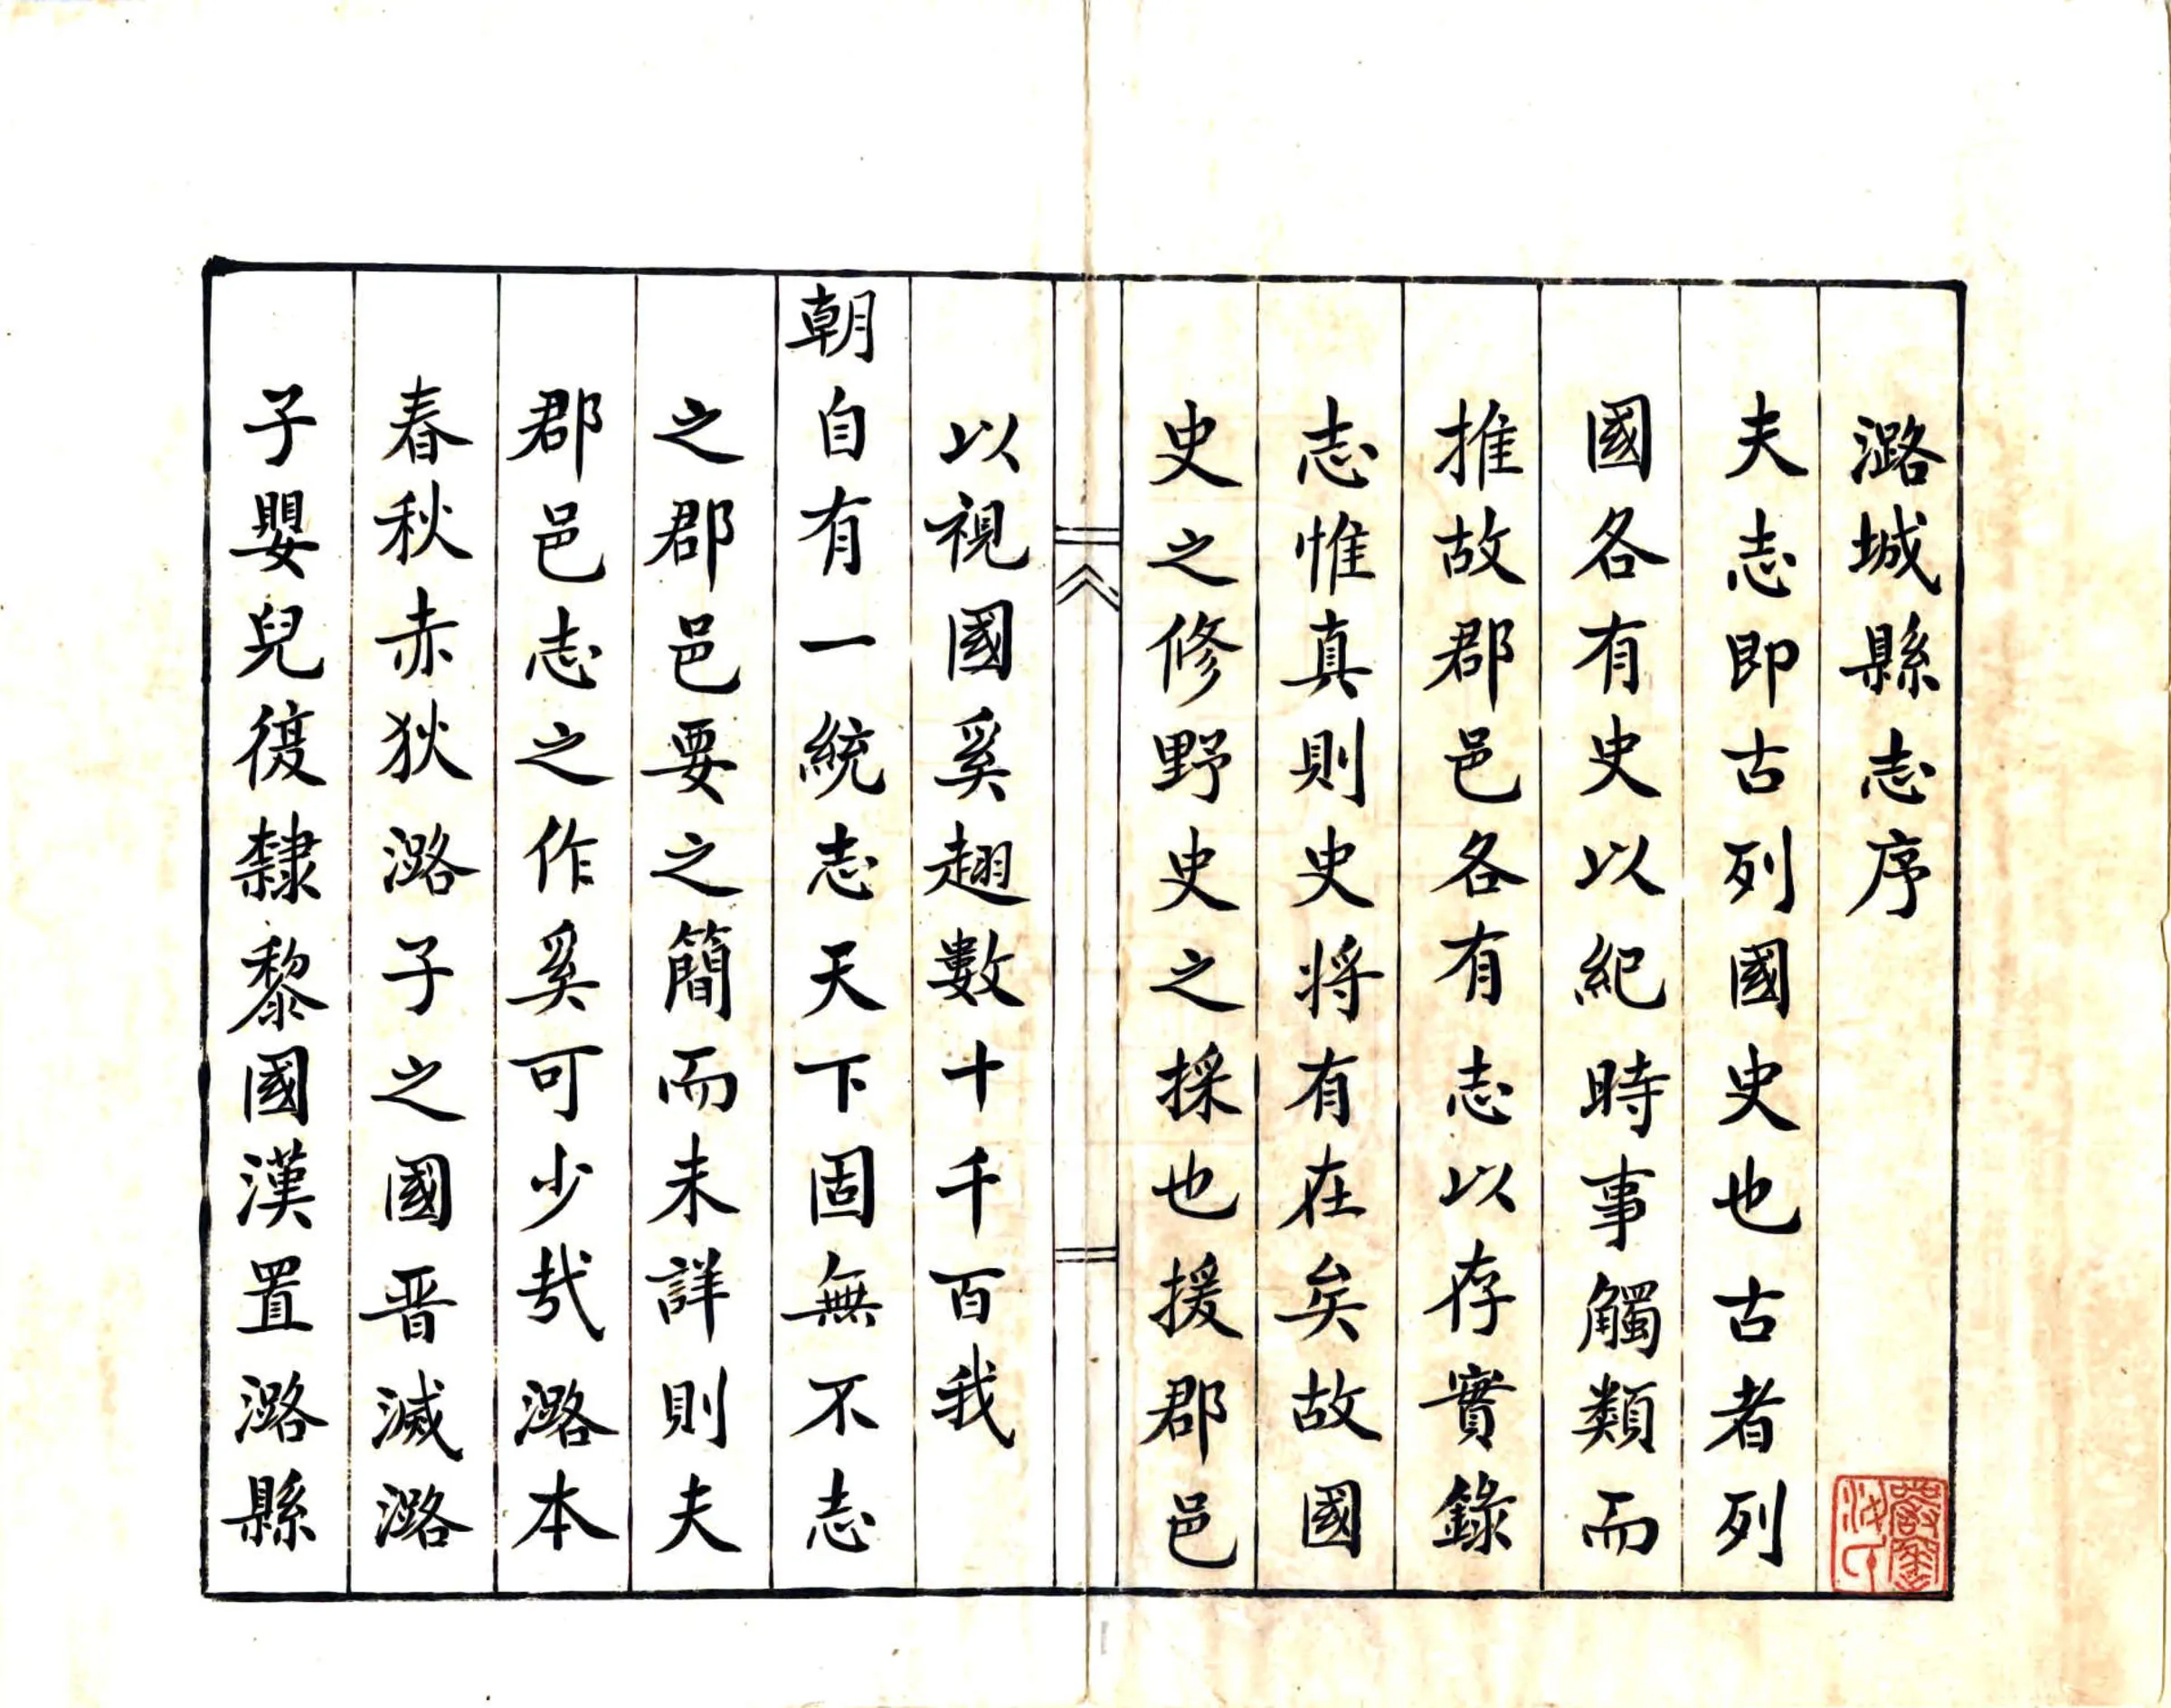 潞城縣志序
夫志即古列國史也古者列
國各有史以紀時事觸類而
推故郡邑各有志以存實錄
志惟真則史將有在矣故國
史之修野史之採也援郡邑
以視國奚趐數十千百我
朝自有一統志天下固無不志
之郡邑要之簡而未詳則夫
郡邑志之作奚可少哉潞本
春秋赤狄潞子之國晋滅潞
子嬰兒復隸黎國漢置潞縣